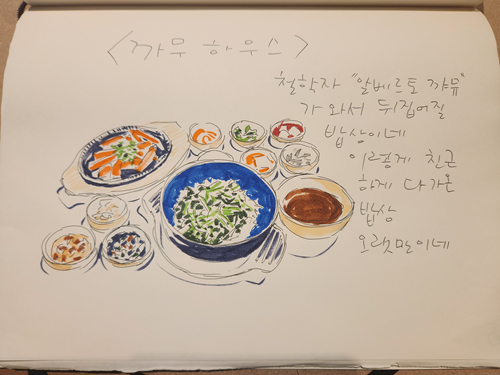 <까무 하우스>
철학자 "알베르토 까뮤"
가 와서 뒤집어질
밥상이네
이렇게 친근
하게 다가온
밥상
오랫만이네